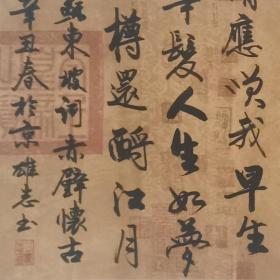 情應笑我早生
華髮人生如夢
樽還酹江月
蘇東坡詞赤壁懷古
辛丑春於京雄志書